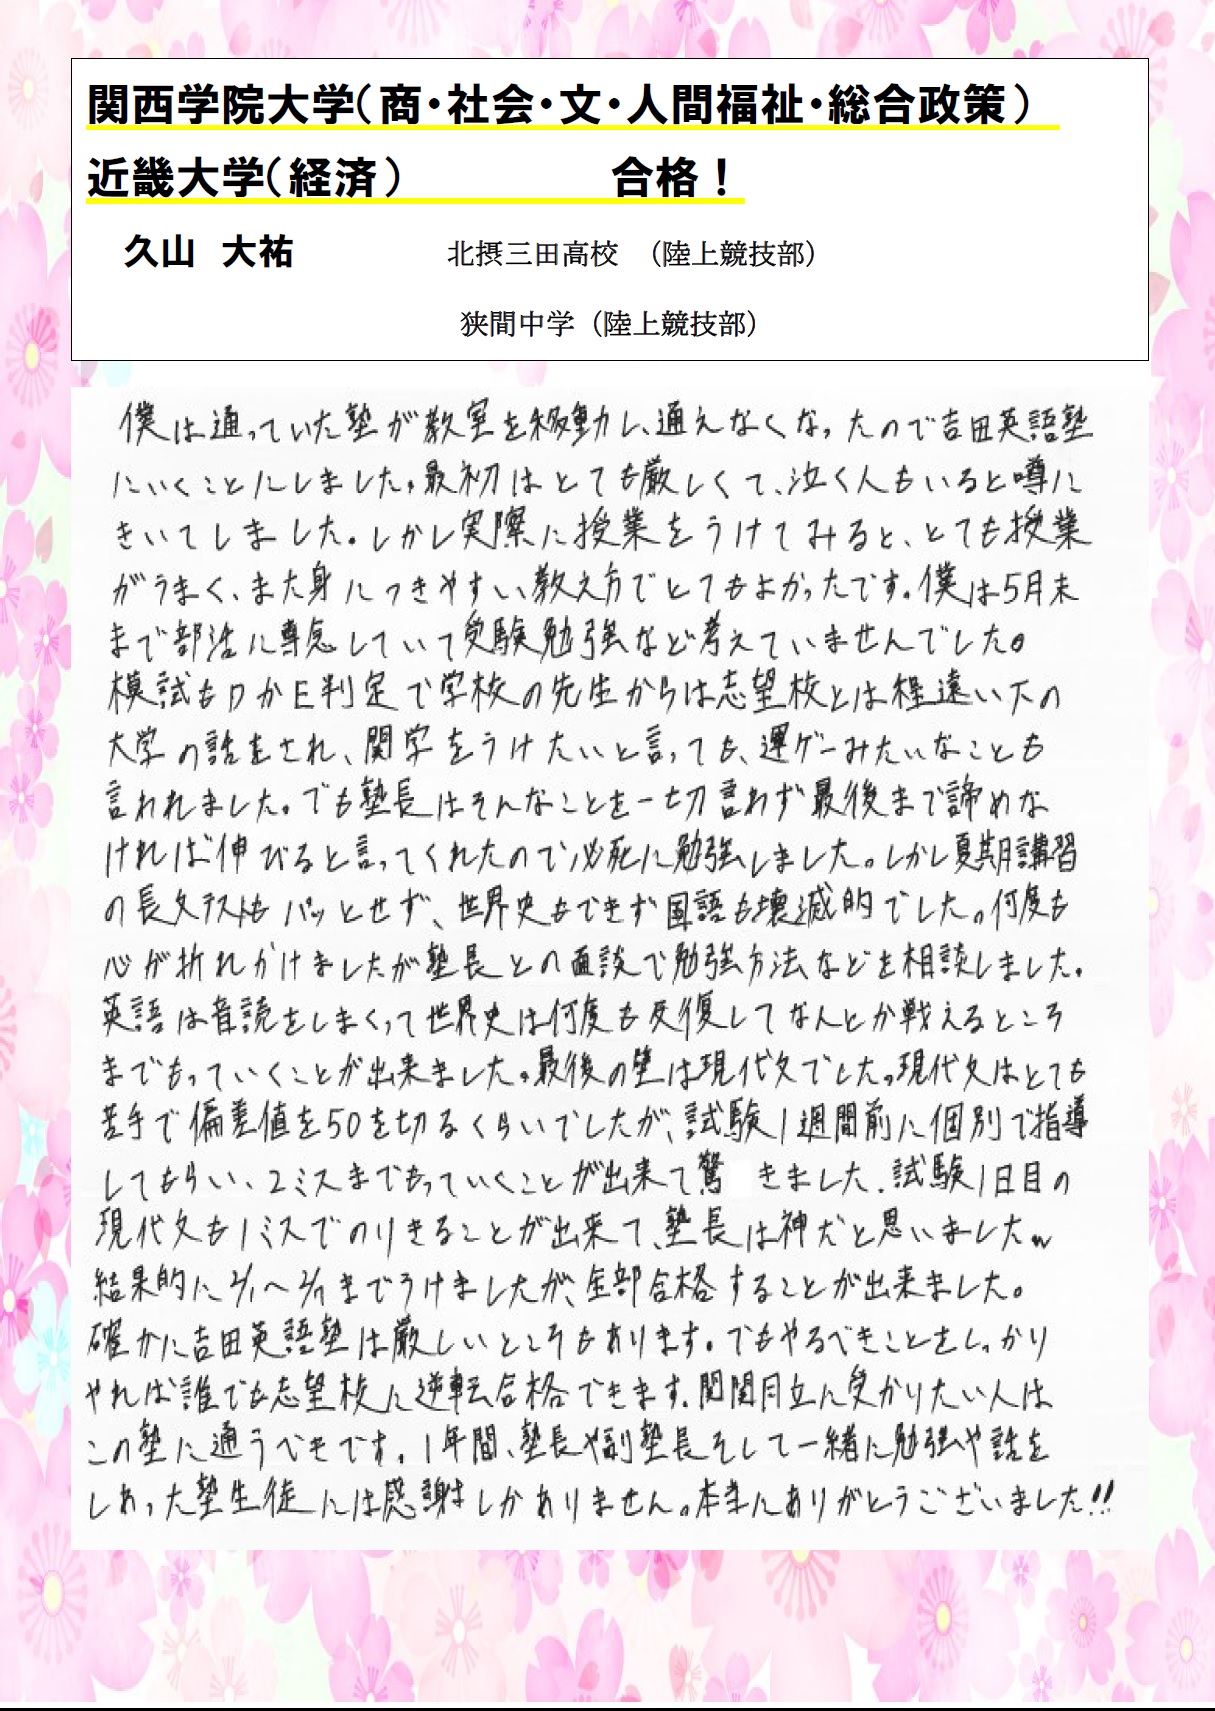 関西学院大学(商・社会・文・人間福祉・総合政策)
近畿大学(経済) 合格！
久山 大祐 北摂三田高校 (陸上競技部)
狭間中学 (陸上競技部)
僕は通っていた塾が教室を移動し、通えなくなったので吉田英語塾
にいくことにしました。最初はとても厳しくて、泣く人もいると噂に
きいてしました。しかし実際に授業をうけてみると、とても授業
がうまく、また身につきやすい教え方でとてもよかったです。僕は5月末
まで部活に専念していて受験勉強など考えていませんでした。
模試もDかE判定で学校の先生からは志望校とは程遠い下の
大学の話をされ、関学をうけたいと言っても、運ゲーみたいなことも
言われました。でも塾長はそんなことを一切言わず最後まで諦めな
ければ伸びると言ってくれたので必死に勉強しました。しかし夏期講習
の長文テストもパッとせず、世界史もできず国語も壊滅的でした。何度も
心が折れかけましたが塾長との面談で勉強方法などを相談しました。
英語は音読をしまくって世界史は何度も反復してなんとか戦えるところ
までもっていくことが出来ました。最後の壁は現代文でした。現代文はとても
苦手で偏差値を50を切るくらいでしたが、試験1週間前に個別で指導
してもらい、2ミスまでもっていくことが出来て驚きました。試験1日目の
現代文も1ミスでのりきることが出来て、塾長は神だと思いましたw
結果的に2/1〜2/7までうけましたが、全部合格することが出来ました。
確かに吉田英語塾は厳しいところもあります。でもやるべきことをしっかり
やれば誰でも志望校に逆転合格できます。関関同立に受かりたい人は
この塾に通うべきです。1年間、塾長や副塾長そして一緒に勉強や話を
しあった塾生徒には感謝しかありません。本当にありがとうございました!!